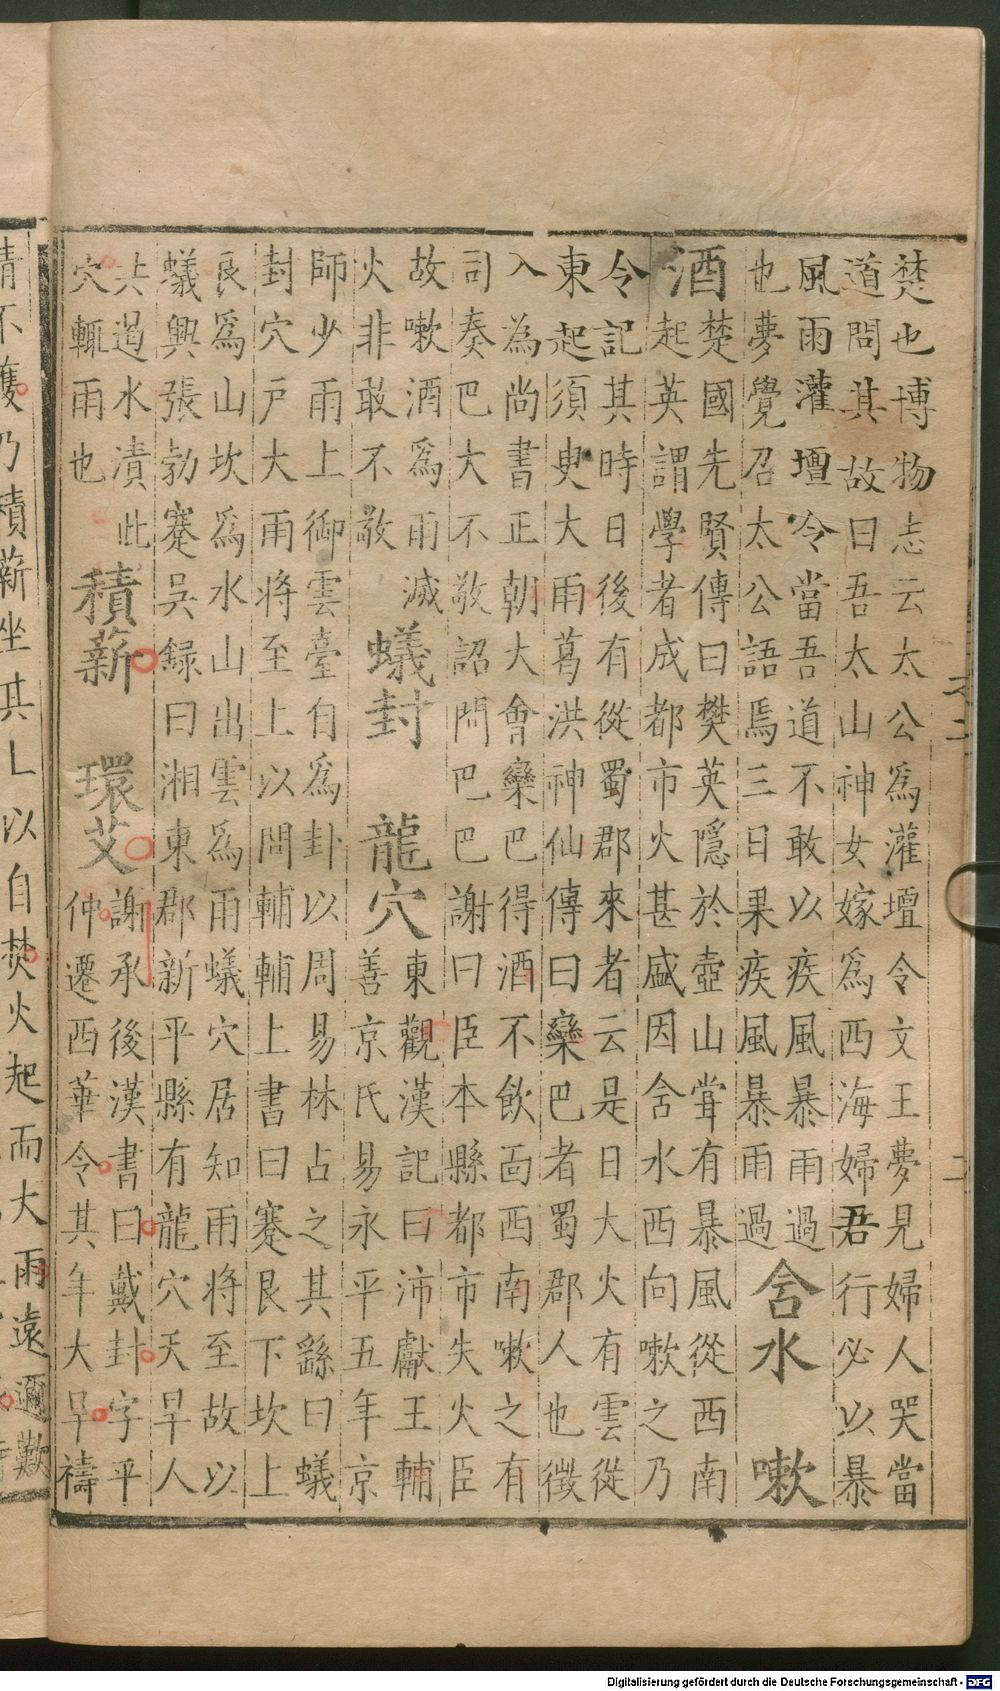 楚也博物志云太公爲灌壇令文王夢見婦人哭當
道問其故曰吾太山神女嫁爲西海婦君行必以暴
風雨灌壇令當吾道不敢以疾風暴雨過
也夢覺召太公語焉三日果疾風暴雨過
含水 嗽
酒
楚國先賢傳曰樊英隱於壺山甞有暴風從西南
起英謂學者成都市火甚盛因舍水西向嗽之乃
令記其時日後有從蜀郡來者云是日大火有雲從
東起須臾大雨葛洪神仙傳曰欒巴者蜀郡人也徵
入為尚書正朝大會欒巴得酒不飲面西南嗽之有
司奏巴大不敬詔問巴巴謝曰臣本縣都市失火臣
故嗽酒爲雨滅
火非敢不敬
蟻封 龍穴
東觀漢記曰沛獻王輔
善京氏易永平五年京
師少雨上御雲臺自爲卦以周易林占之其繇曰蟻
封穴戶大雨將至上以問輔輔上書曰蹇艮下坎上
艮爲山坎爲水山出雲爲雨蟻穴居知雨將至故以
蟻興張勃蹇吳録曰湘東郡新平縣有龍穴天旱人
共遏水漬此
穴輒雨也
積薪 環艾
謝承後漢書曰戴封字平
仲遷西華令其年大旱禱
請不獲乃積薪坐其上以自焚火起而大雨遠邇歎
Digitalisierung gefördert durch die Deutsche Forschungsgemeinschaft - DFG